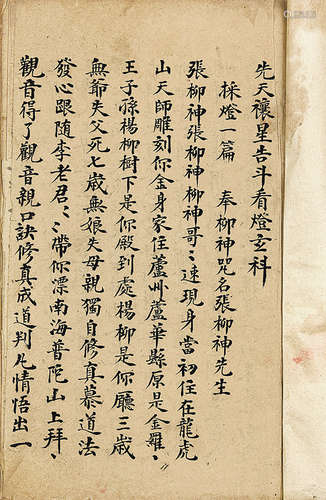 先天禳星告斗看燈玄科
採燈一篇　奉柳神咒名張柳神先生
張柳神張柳神柳神哥〻速現身當初住在龍虎
山天師雕刻你金身家住蘆州蘆華縣原是金羅〻
王子孫楊柳樹下是你殿到處楊柳是你廳三歲
無爺失父死七歲無娘失母親獨自修真慕道法
發心跟隨李老君〻〻帶你漂南海普陀山上拜〻
觀音得了觀音親口訣修真成道判凡情悟出一